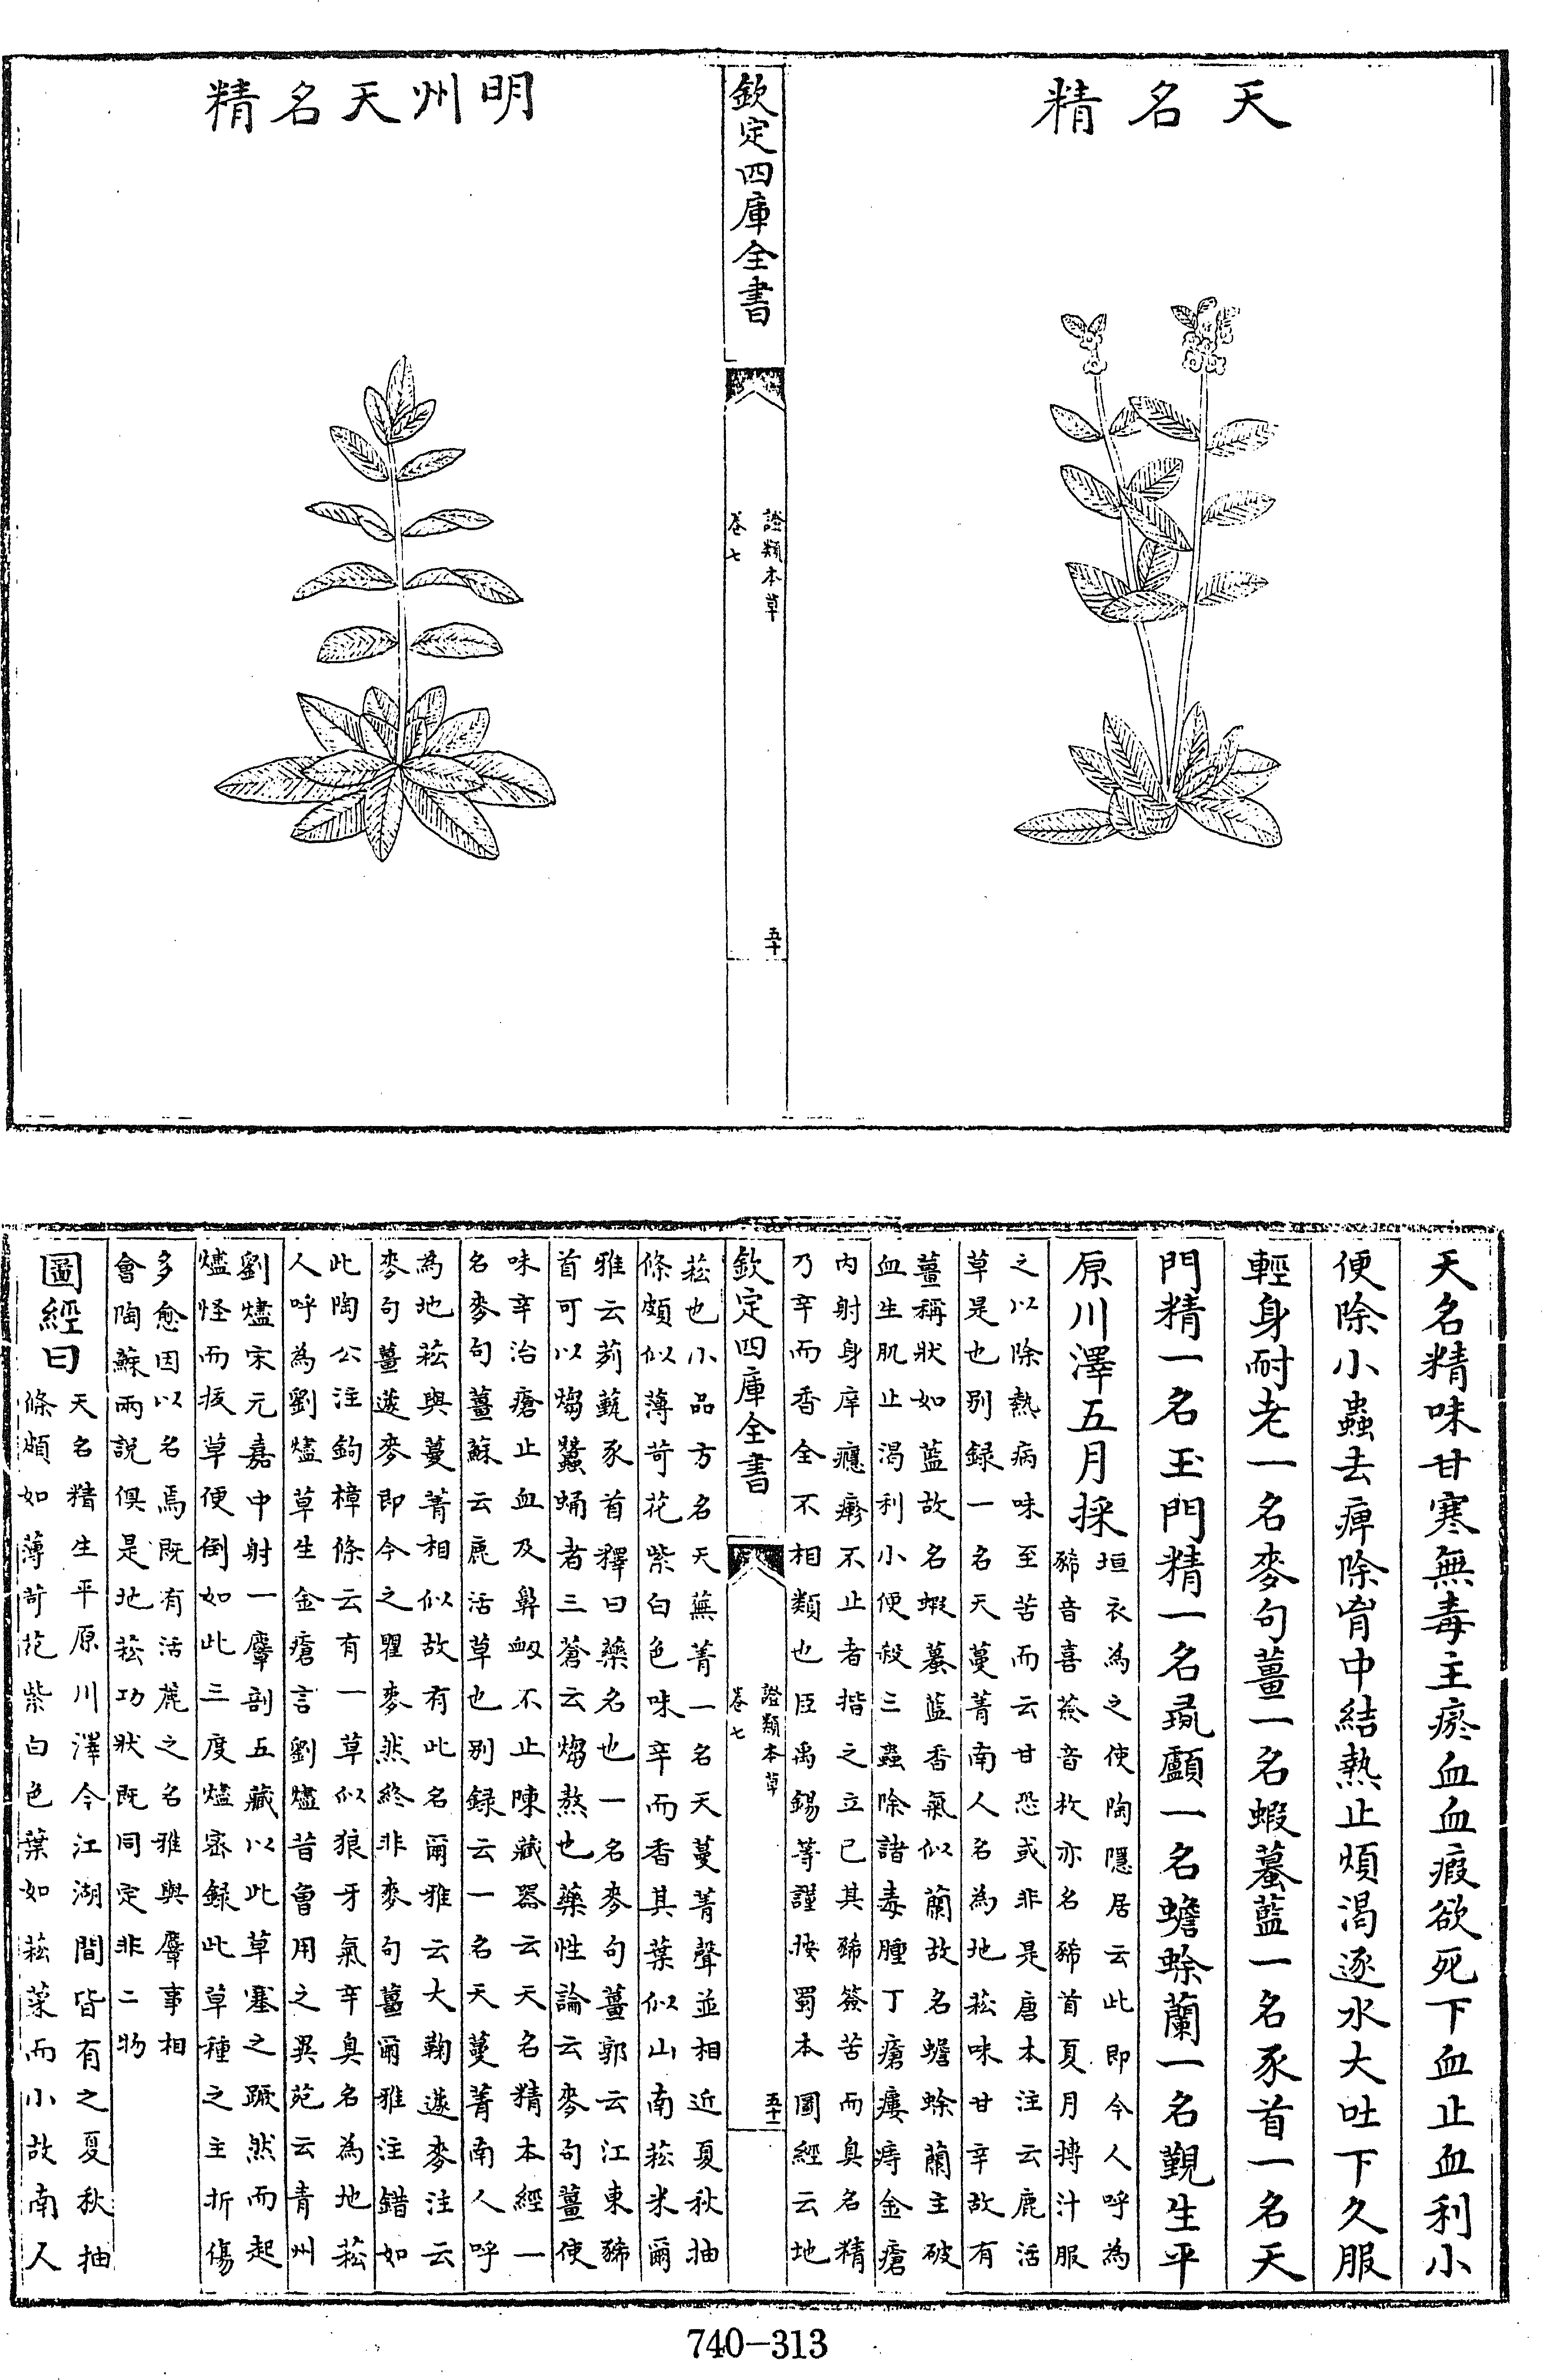 天名精
欽定四庫全書
證類本草
卷七
五十
明州天名精
天名精味甘寒無毒主瘀血血瘕欲死下血止血利小
便除小蟲去痺除胷中結熱止煩渴逐水大吐下久服
輕身耐老一名麥句薑一名蝦蟇藍一名豕首一名天
門精一名玉門精一名彘顱一名蟾蜍蘭一名覲生平
原川澤五月採
垣衣為之使陶隱居云此即今人呼為
豨音喜薟音枚亦名豨首夏月搗汁服
之以除熱病味至苦而云甘恐或非是唐本注云鹿活
草是也别録一名天蔓菁南人名為地菘味甘辛故有
薑稱狀如藍故名蝦蟇藍香氣似蘭故名蟾蜍蘭主破
血生肌止渴利小便殺三蟲除諸毒腫丁瘡瘻痔金瘡
内射身痒癮疹不止者揩之立已其豨薟苦而臭名精
乃辛而香全不相類也臣禹錫等謹按蜀本圖經云地
欽定四庫全書
證類本草
卷七
五十一
菘也小品方名天蕪菁一名天蔓菁聲並相近夏秋抽
條頗似薄苛花紫白色味辛而香其葉似山南菘米爾
雅云茢薽豕首釋曰藥名也一名麥句薑郭云江東豨
首可以煼蠶蛹者三蒼云煼熬也藥性論云麥句薑使
味辛治瘡止血及鼻衂不止陳藏器云天名精本經一
名麥句薑蘇云鹿活草也别録云一名天蔓菁南人呼
為地菘與蔓菁相似故有此名爾雅云大鞠蘧麥注云
麥句薑蘧麥即今之瞿麥然終非麥句薑爾雅注錯如
此陶公注鈎樟條云有一草似狼牙氣辛臭名為地菘
人呼為劉燼草生金瘡言劉燼昔曾用之異苑云青州
劉燼宋元嘉中射一麞剖五藏以此草塞之蹶然而起
燼怪而拔草便倒如此三度燼密録此草種之主折傷
多愈因以名焉既有活鹿之名雅與麞事相
會陶蘇兩説俱是地菘功狀既同定非二物
圖經曰
天名精生平原川澤今江湖間皆有之夏秋抽
條頗如薄苛花紫白色葉如菘菜而小故南人
740-313